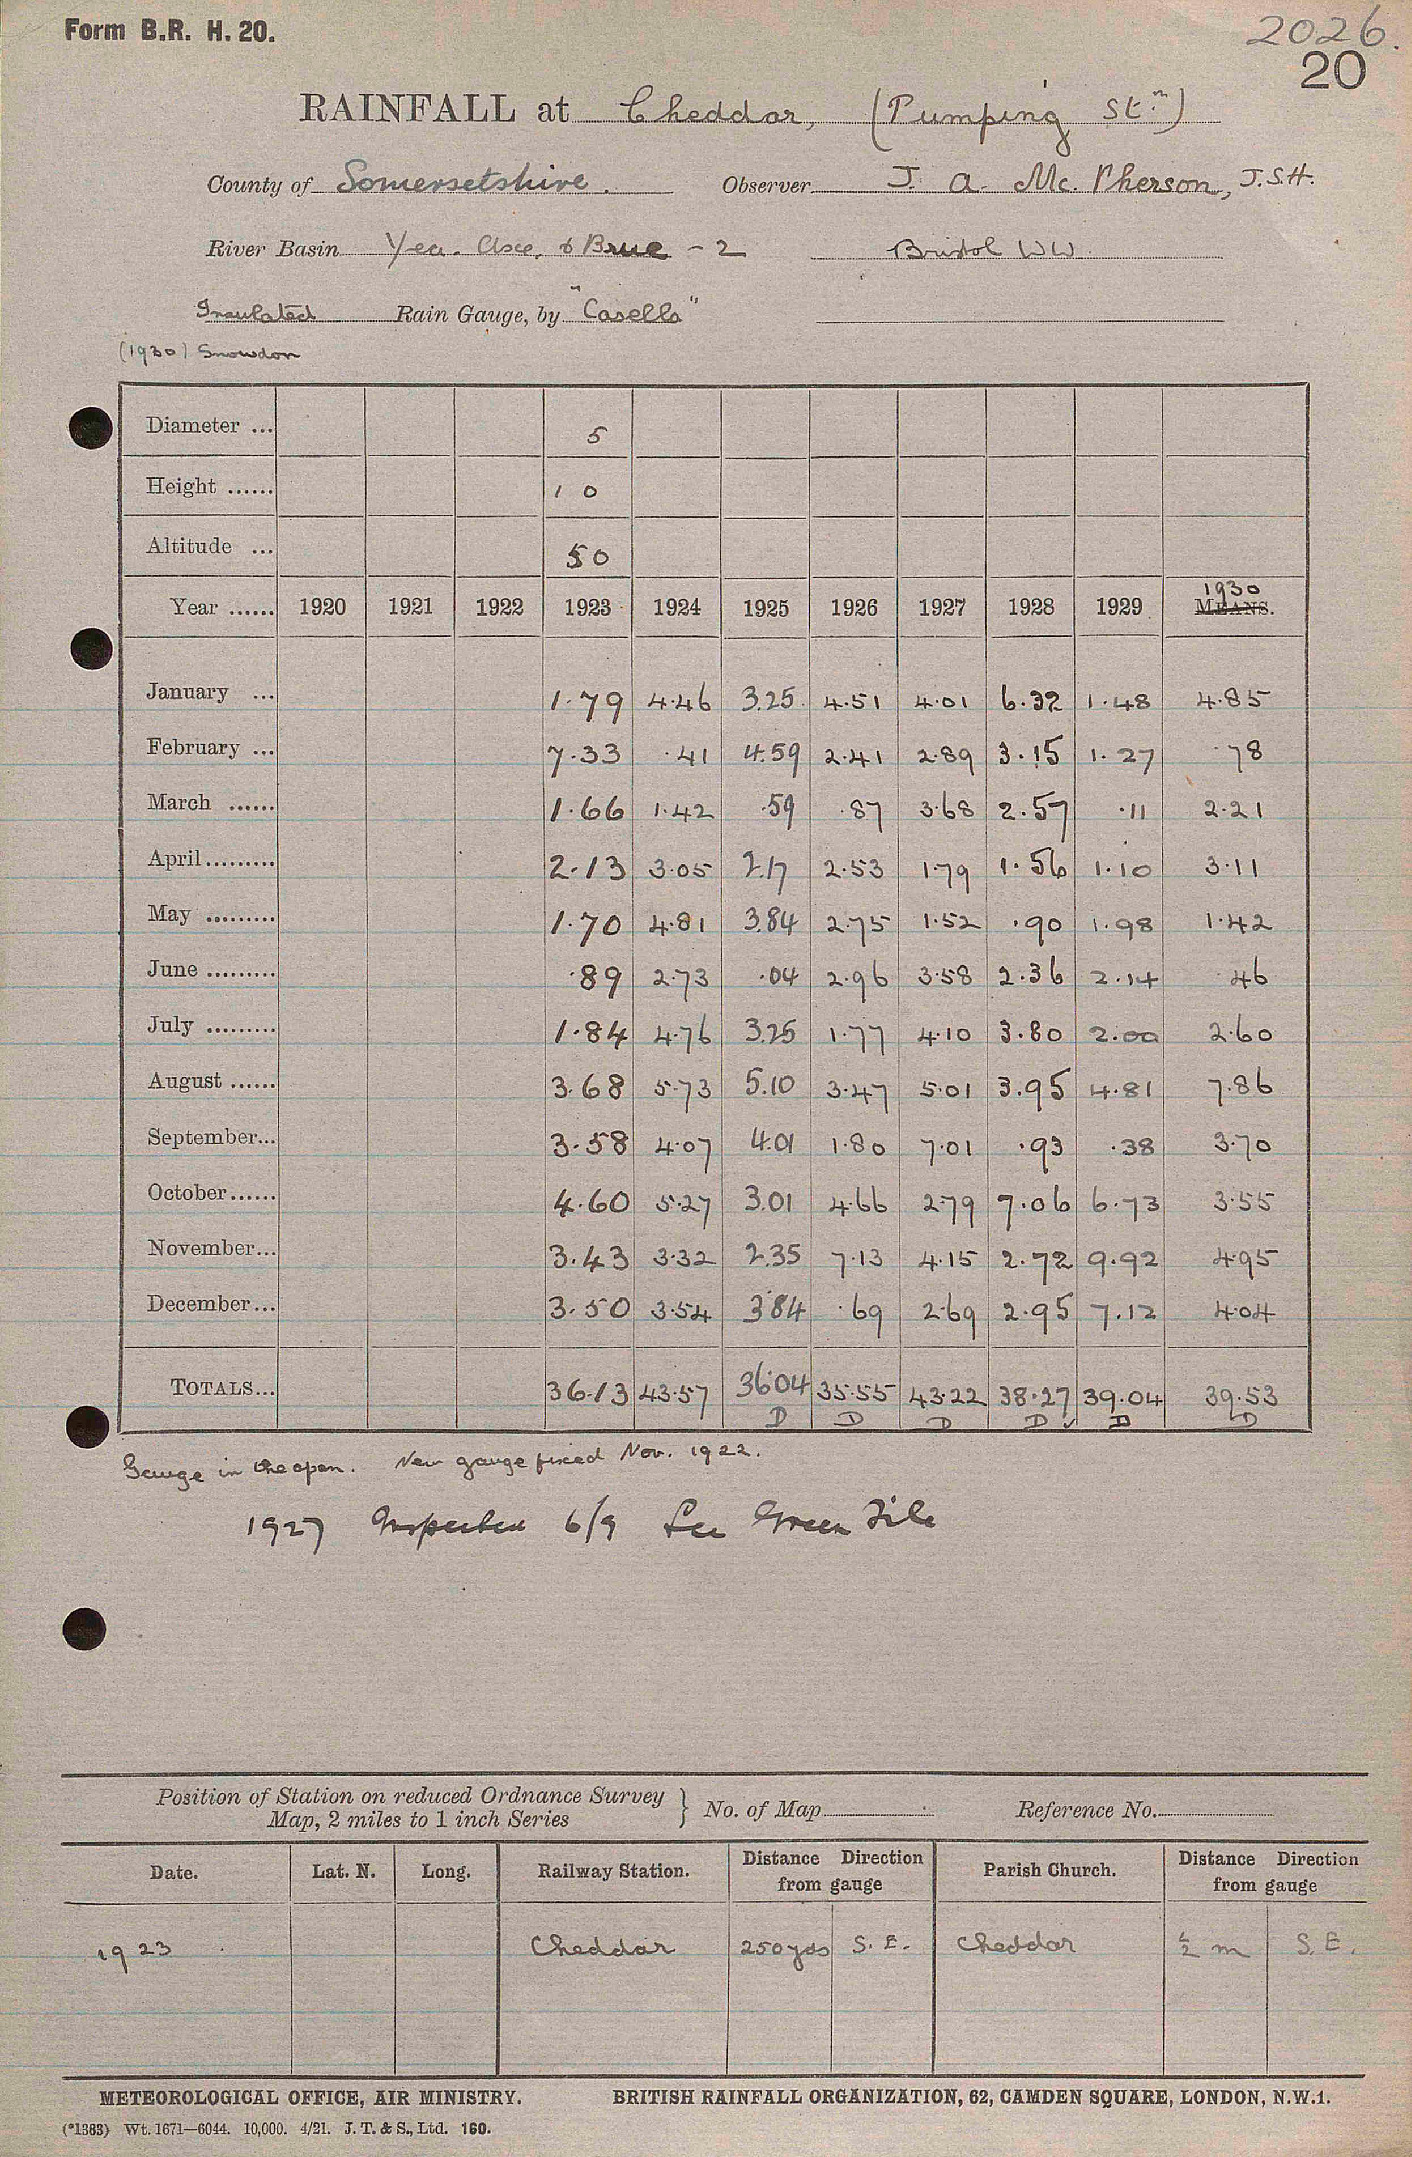 Form B.R. H. 20.
2026.
20
RAINFALL at Cheddar, (Pumping Stn.)
County of Somersetshire. Observer J. A. Mc. Pherson, J.S.H.
River Basin Yeo. Axe, & Brue - 2 Bristol WW.
Insulated Rain Gauge, by "Casella"
(1930) Snowdon
Diameter ... 5
Height ...... 1 0
Altitude ... 50
Year ...... 1920 1921 1922 1923 1924 1925 1926 1927 1928 1929 1930 MEANS.
January ... 1.79 4.46 3.25 4.51 4.01 6.32 1.48 4.85
February ... 7.33 .41 4.59 2.41 2.89 3.15 1.27 .78
March ...... 1.66 1.42 .59 .87 3.68 2.57 .11 2.21
April......... 2.13 3.05 2.17 2.53 1.79 1.56 1.10 3.11
May ......... 1.70 4.81 3.84 2.75 1.52 .90 1.98 1.42
June ......... .89 2.73 .04 2.96 3.58 2.36 2.14 .46
July ......... 1.84 4.76 3.25 1.77 4.10 3.80 2.00 2.60
August ...... 3.68 5.73 5.10 3.47 5.01 3.95 4.81 7.86
September... 3.58 4.07 4.01 1.80 7.01 .93 .38 3.70
October...... 4.60 5.27 3.01 4.66 2.79 7.06 6.73 3.55
November... 3.43 3.32 2.35 7.13 4.15 2.72 9.92 4.95
December... 3.50 3.54 3.84 .69 2.69 2.95 7.12 4.04
TOTALS... 36.13 43.57 36.04 35.55 43.22 38.27 39.04 39.53
D D D D D D
Gauge in the open. New gauge fixed Nov. 1922.
1927 Inspected 6/9 See Green File
Position of Station on reduced Ordnance Survey
Map, 2 miles to 1 inch Series } No. of Map Reference No.
Date. Lat. N. Long. Railway Station. Distance Direction from gauge Parish Church. Distance Direction from gauge
1923 Cheddar 250 yds S. E. Cheddar 1/2 m S. E.
METEOROLOGICAL OFFICE, AIR MINISTRY. BRITISH RAINFALL ORGANIZATION, 62, CAMDEN SQUARE, LONDON, N.W.1.
(*1383) Wt. 1671—6044. 10,000. 4/21. J. T. & S., Ltd. 160.